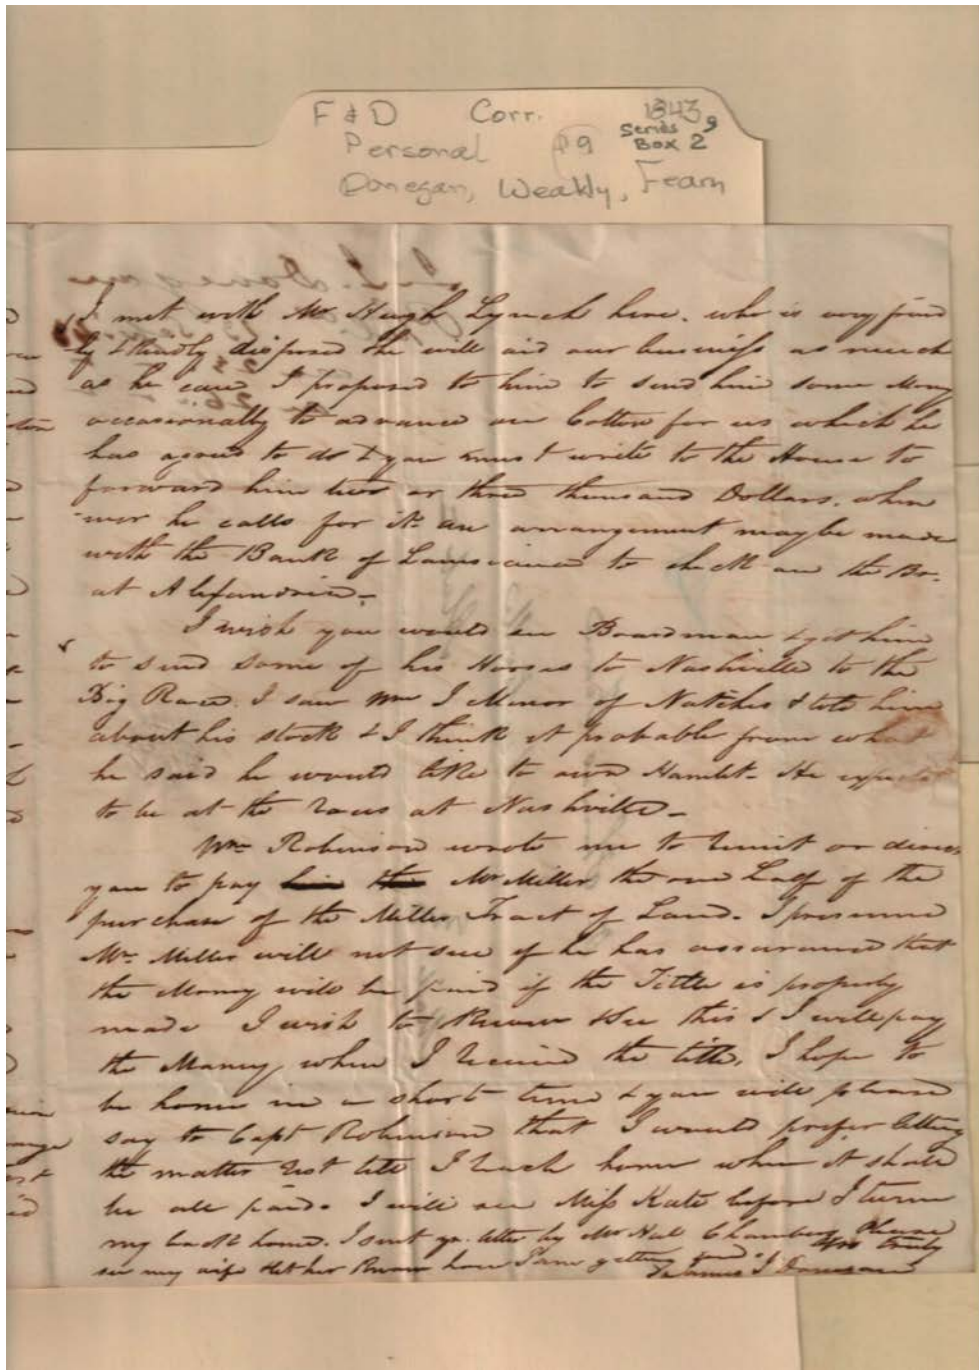 F & D Corr. 1843
Personal 9 Series 9
Box 2
Donegan, Weakly, Fearn
I met with Mr Hugh Lynch here. who is very friend
ly & kindly disposed he will aid our business as much
as he can I proposed to him to send him some Mony
occasionally to advance on Cotton for us which he
has agreed to do & you must write to the House to
forward him two or three thousand Dollars. when
ever he calls for it an arrangement maybe made
with the Bank of Louisiana to check on the Br.
at Alexandria –
I wish you would see Boardman & get him
to send some of his Horses to Nashville to the
Big Race. I saw Wm J Minor of Natches & told him
about his stock & I think it probable from what
he said he would like to own Hamlet – He expects
to be at the races at Nashville –
Wm Robinson wrote me to remit or direct
you to pay Mr Miller the one Half of the
purchase of the Miller Tract of Land. I presume
Mr. Miller will not sue if he has assurance that
the Money will be paid if the Tittle is properly
made I wish to know this & I will pay
the Money when I receive the title. I hope to
be home in a short time & you will please
say to Capt Robinson that I would prefer letting
the matter rest till I reach home when it shall
be all paid. I will see Miss Kate before I turn
my back home. I sent yr. letter by Mr Hal Chambers Please
see my wife & let her know how I am getting Yrs truly
James J Donegan